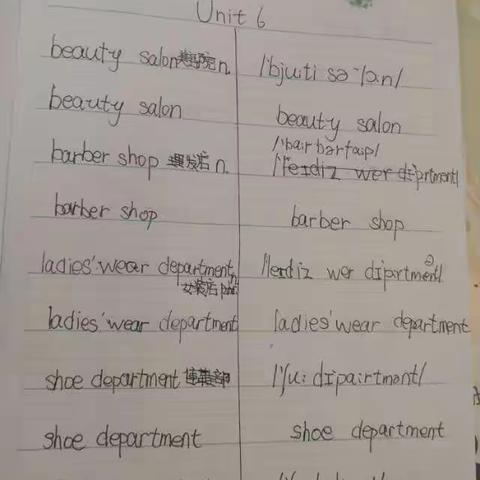 Unit 6
beauty salon 美容院 n. /'bjuːti sə'lɒn/
beauty salon beauty salon
barber shop 理发店 n. /'bairbərʃɒip/
barber shop barber shop
ladies' wear department n. /'leɪdiz wer dipɑrtmənt/
女装店
ladies' wear department ladies' wear department
shoe department /'ʃuː dipɑirtmənt/
shoe department shoe department